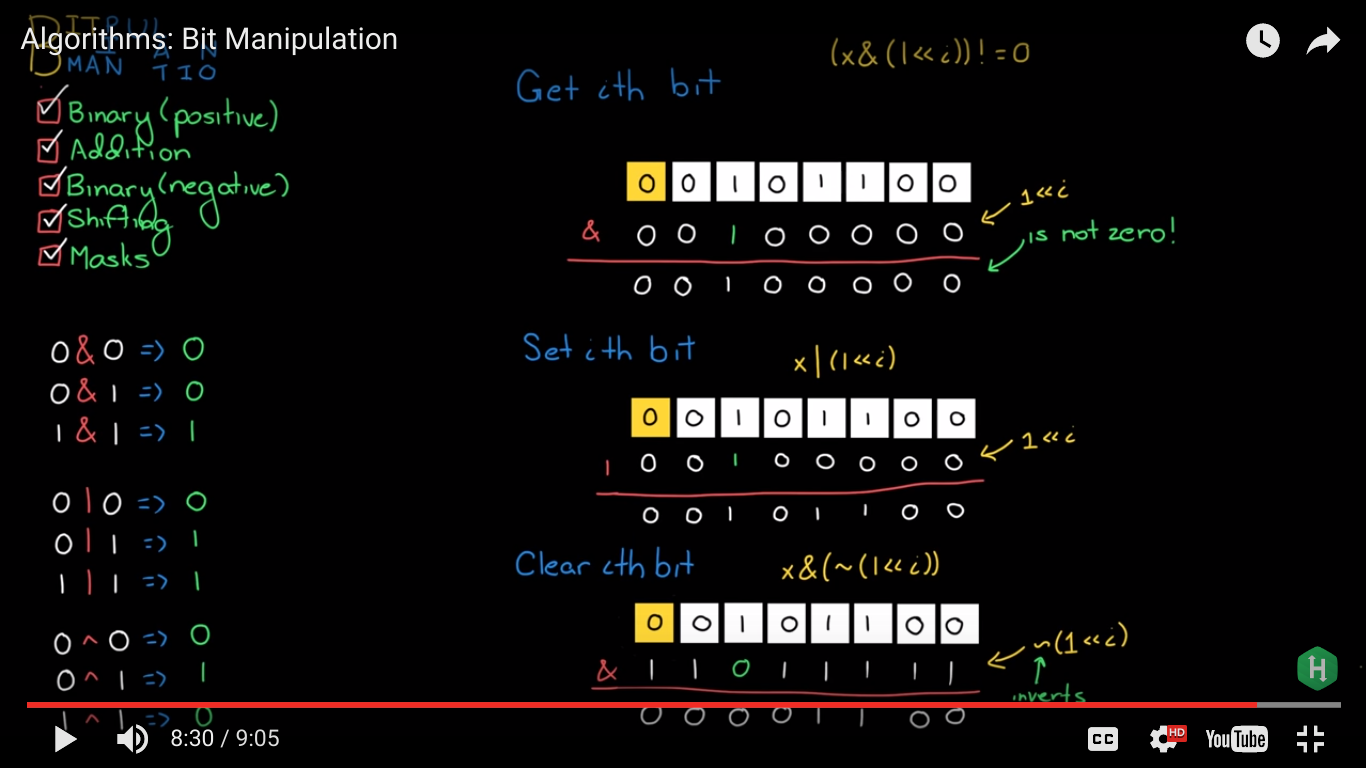 Algorithms: Bit Manipulation
BIT
MAN TIO
Binary (positive)
Addition
Binary (negative)
Shifting
Masks
0 & 0 => 0
0 & 1 => 0
1 & 1 => 1
0 | 0 => 0
0 | 1 => 1
1 | 1 => 1
0 ^ 0 => 0
0 ^ 1 => 1
1 ^ 1 => 0
(x&(1<<i))!=0
Get ith bit
0 0 1 0 1 1 0 0
1<<i
& 0 0 1 0 0 0 0 0
is not zero!
0 0 1 0 0 0 0 0
Set ith bit
x|(1<<i)
0 0 1 0 1 1 0 0
1<<i
| 0 0 1 0 0 0 0 0
0 0 1 0 1 1 0 0
Clear ith bit
x&(~(1<<i))
0 0 1 0 1 1 0 0
~(1<<i)
& 1 1 0 1 1 1 1 1
inverts
0 0 0 0 1 1 0 0
H
8:30 / 9:05
CC
HD
YouTube